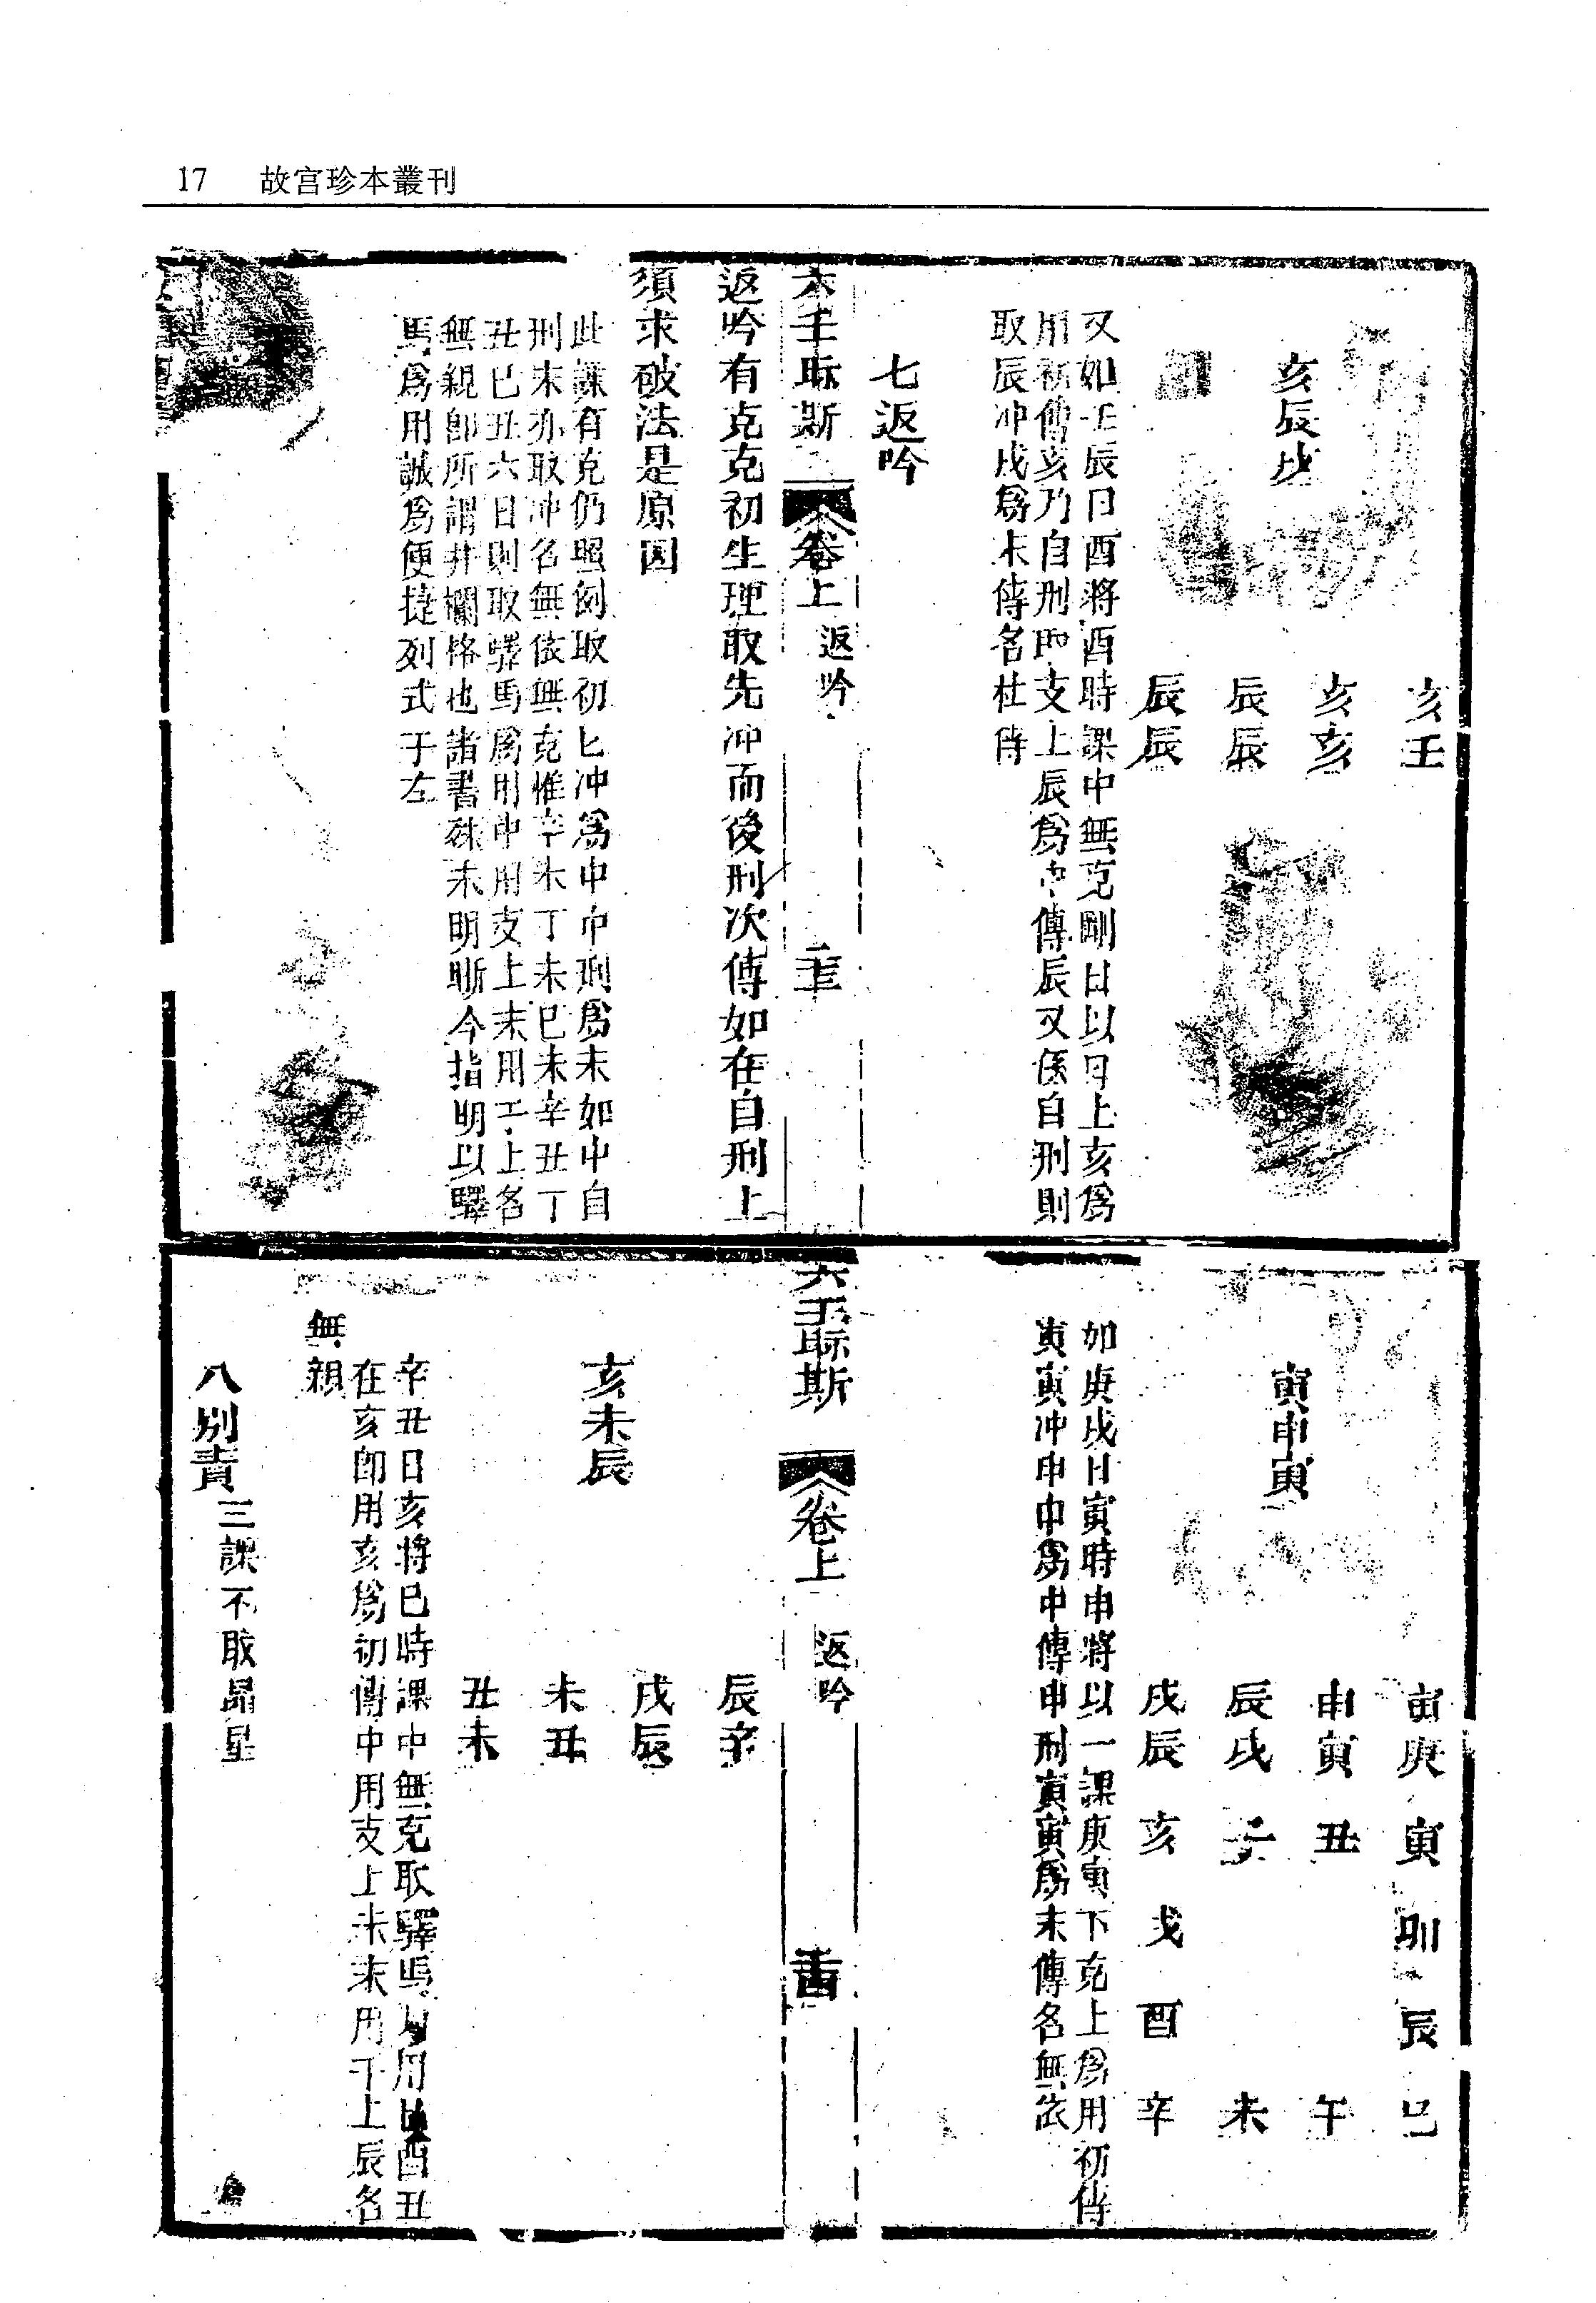 17 故宫珍本叢刊
亥壬
亥亥
辰辰
辰辰
亥辰戌
又如壬辰日酉將酉時課中無克剛日以日上亥爲
用初傳亥乃自刑即支上辰爲中傳辰又係自刑則
取辰冲戌爲末傳名杜傳
七返吟
六壬眎斯 卷上 返吟 二十三
返吟有克克初生理取先冲而後刑次傳如在自刑上
須求破法是原因
此課有克仍照例取初匕冲爲中中刑爲末如中自
刑末亦取冲名無依無克惟辛未丁未巳未辛丑丁
丑巳丑六日則取驛馬爲用中用支上末用干上名
無親即所謂井欄格也諸書殊未明晰今指明以驛
馬爲用誠爲便捷列式于左
寅庚 寅 卯 辰 巳
申寅 丑 午
辰戌 子 未
戌辰 亥 戌 酉 辛
寅申寅
如庚戌日寅時申將以一課庚寅下克上爲用初傳
寅寅冲申申爲中傳申刑寅寅爲末傳名無依
六壬眎斯 卷上 返吟 二十四
辰辛
戌辰
未丑
丑未
亥未辰
辛丑日亥將巳時課中無克取驛馬用巳酉丑
在亥即用亥爲初傳中用支上未末用干上辰名
無親
八別責 三課不取昴星